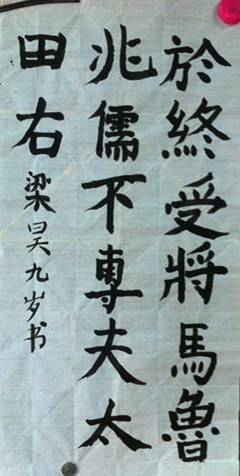 於終受將馬魯
兆儒不專夫太
田右梁昊九岁书